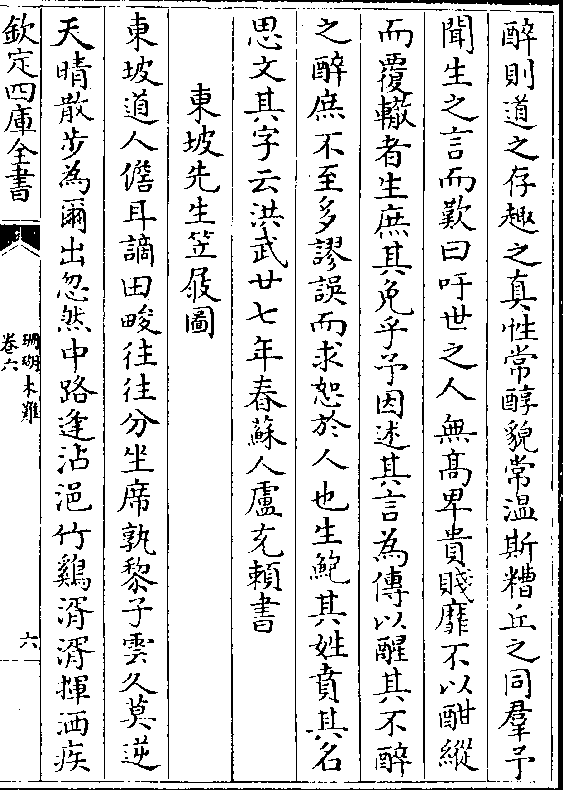 醉則道之存趣之真性常醇貌常温斯糟丘之同羣予
聞生之言而歎曰吁世之人無髙卑貴賤靡不以酣縱
而覆轍者生庶其免乎予因述其言為傳以醒其不醉
之醉庶不至多謬誤而求恕於人也生鮑其姓賁其名
思文其字云洪武廿七年春蘇人盧充頼書
東坡先生笠屐圖
東坡道人儋耳謫田畯往往分坐席孰黎子雲久莫逆
天晴散步為爾出忽然中路逢沾浥竹鷄滑滑揮洒疾
欽定四庫全書
珊瑚木難
卷六
六